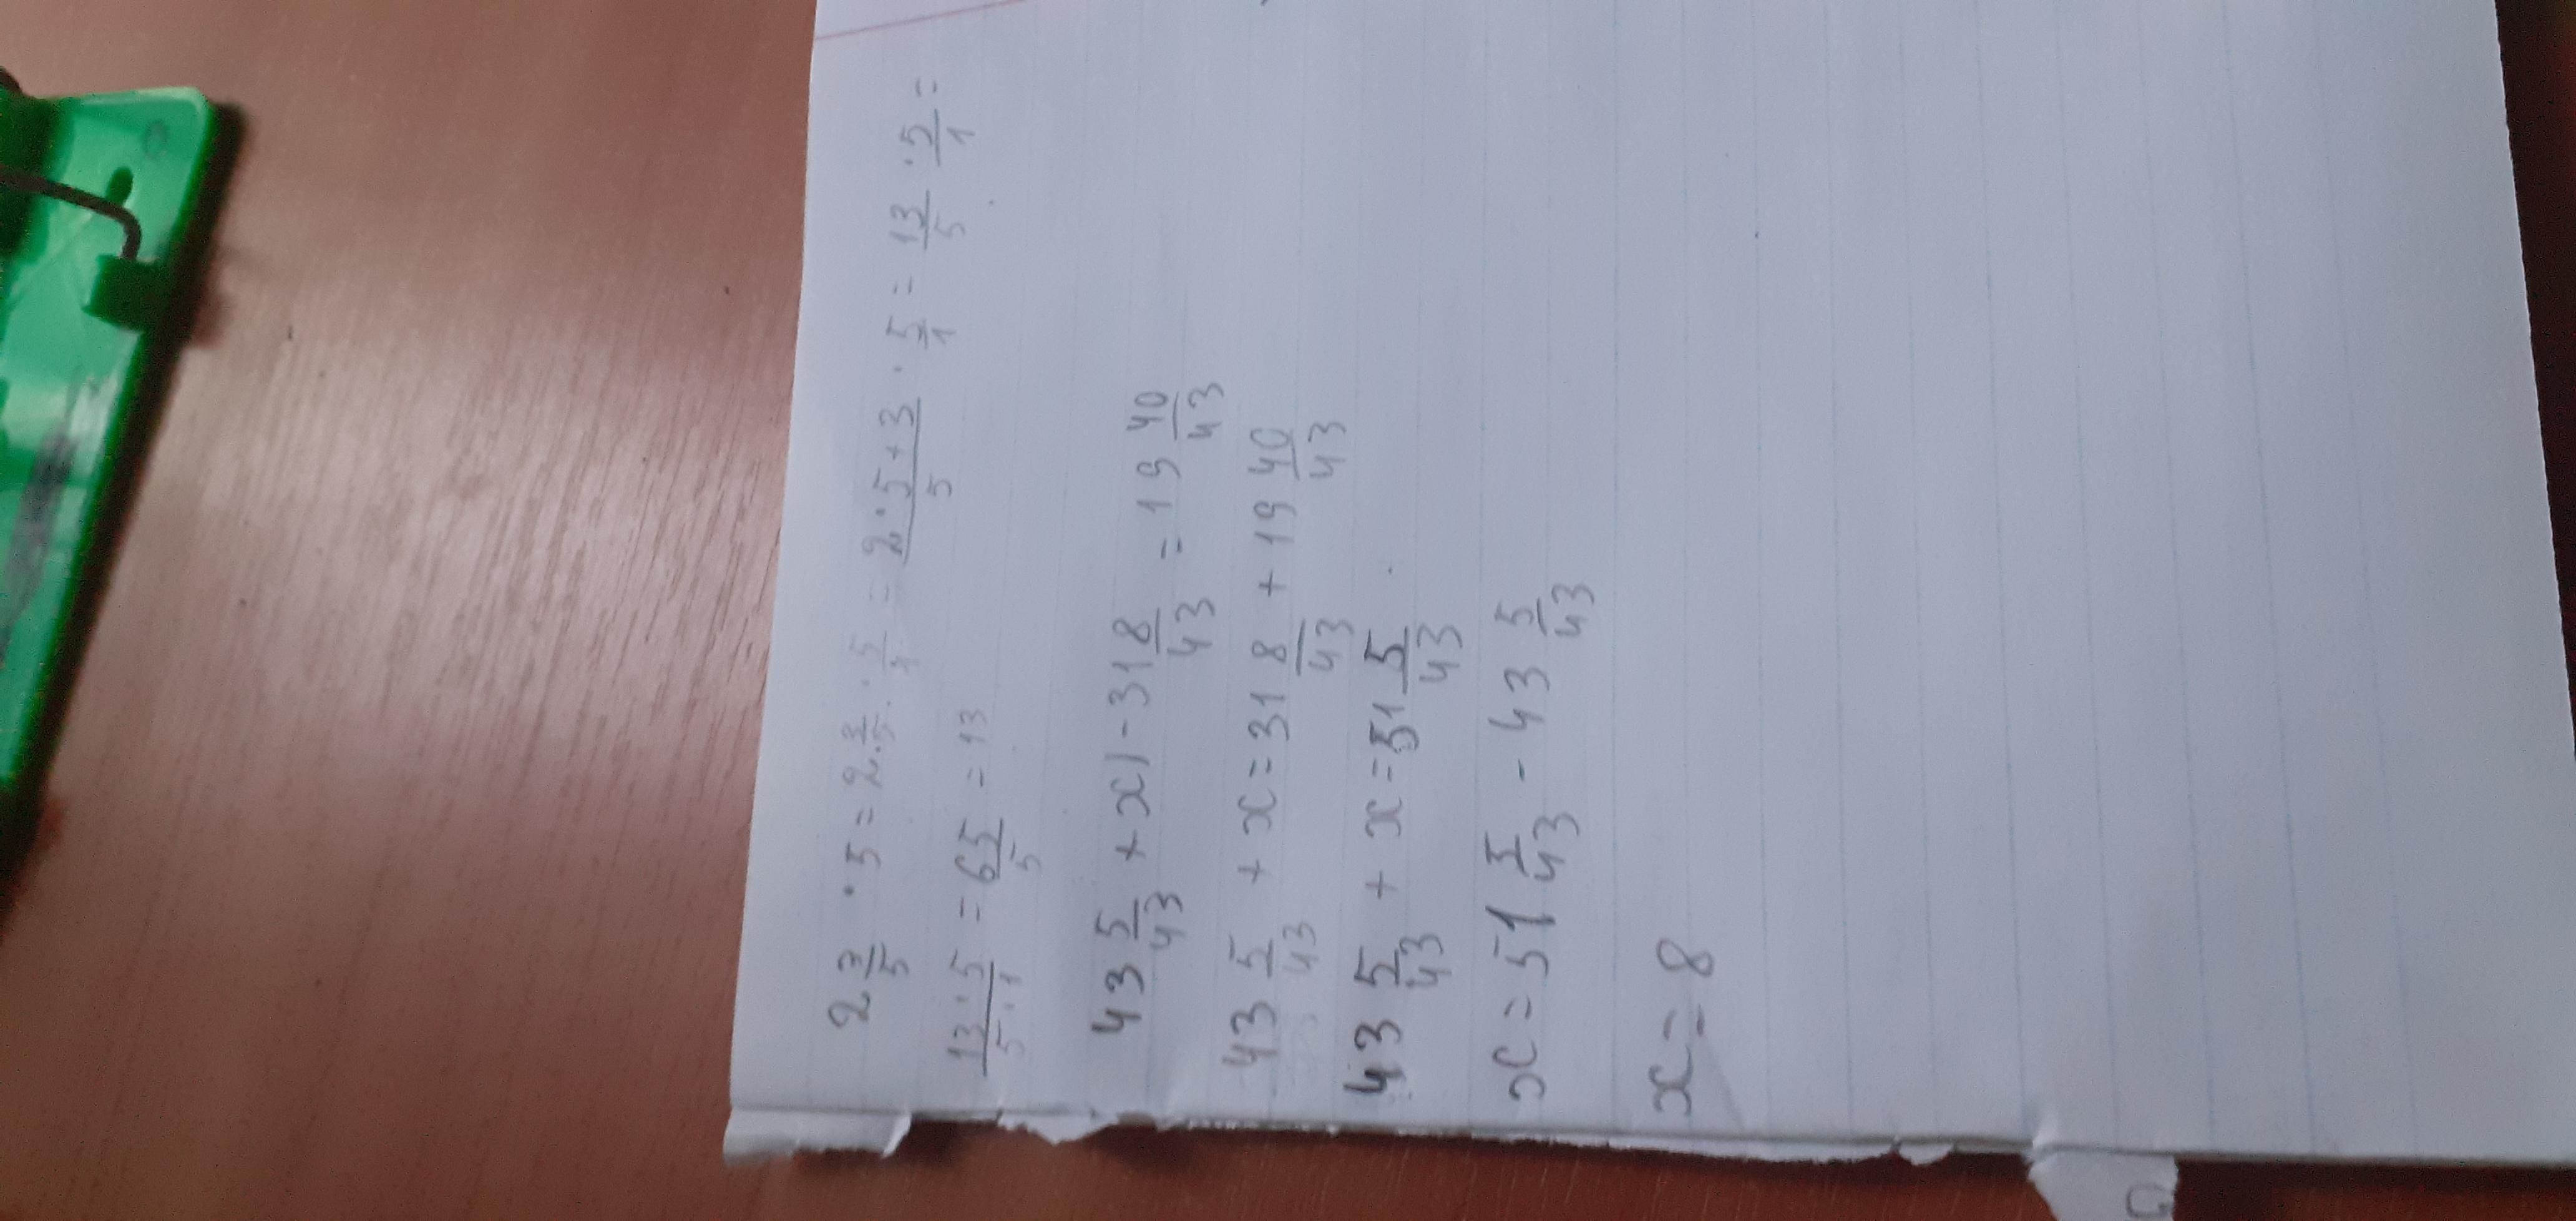 2 3/5 · 5 = 2 · 3/5 · 5/1 = (2 · 5 + 3)/5 · 5/1 = 13/5 · 5/1 =
(13 · 5)/(5 · 1) = 65/5 = 13
43 5/43 + x) - 31 8/43 = 19 40/43
43 5/43 + x = 31 8/43 + 19 40/43
43 5/43 + x = 51 5/43
x = 51 5/43 - 43 5/43
x = 8